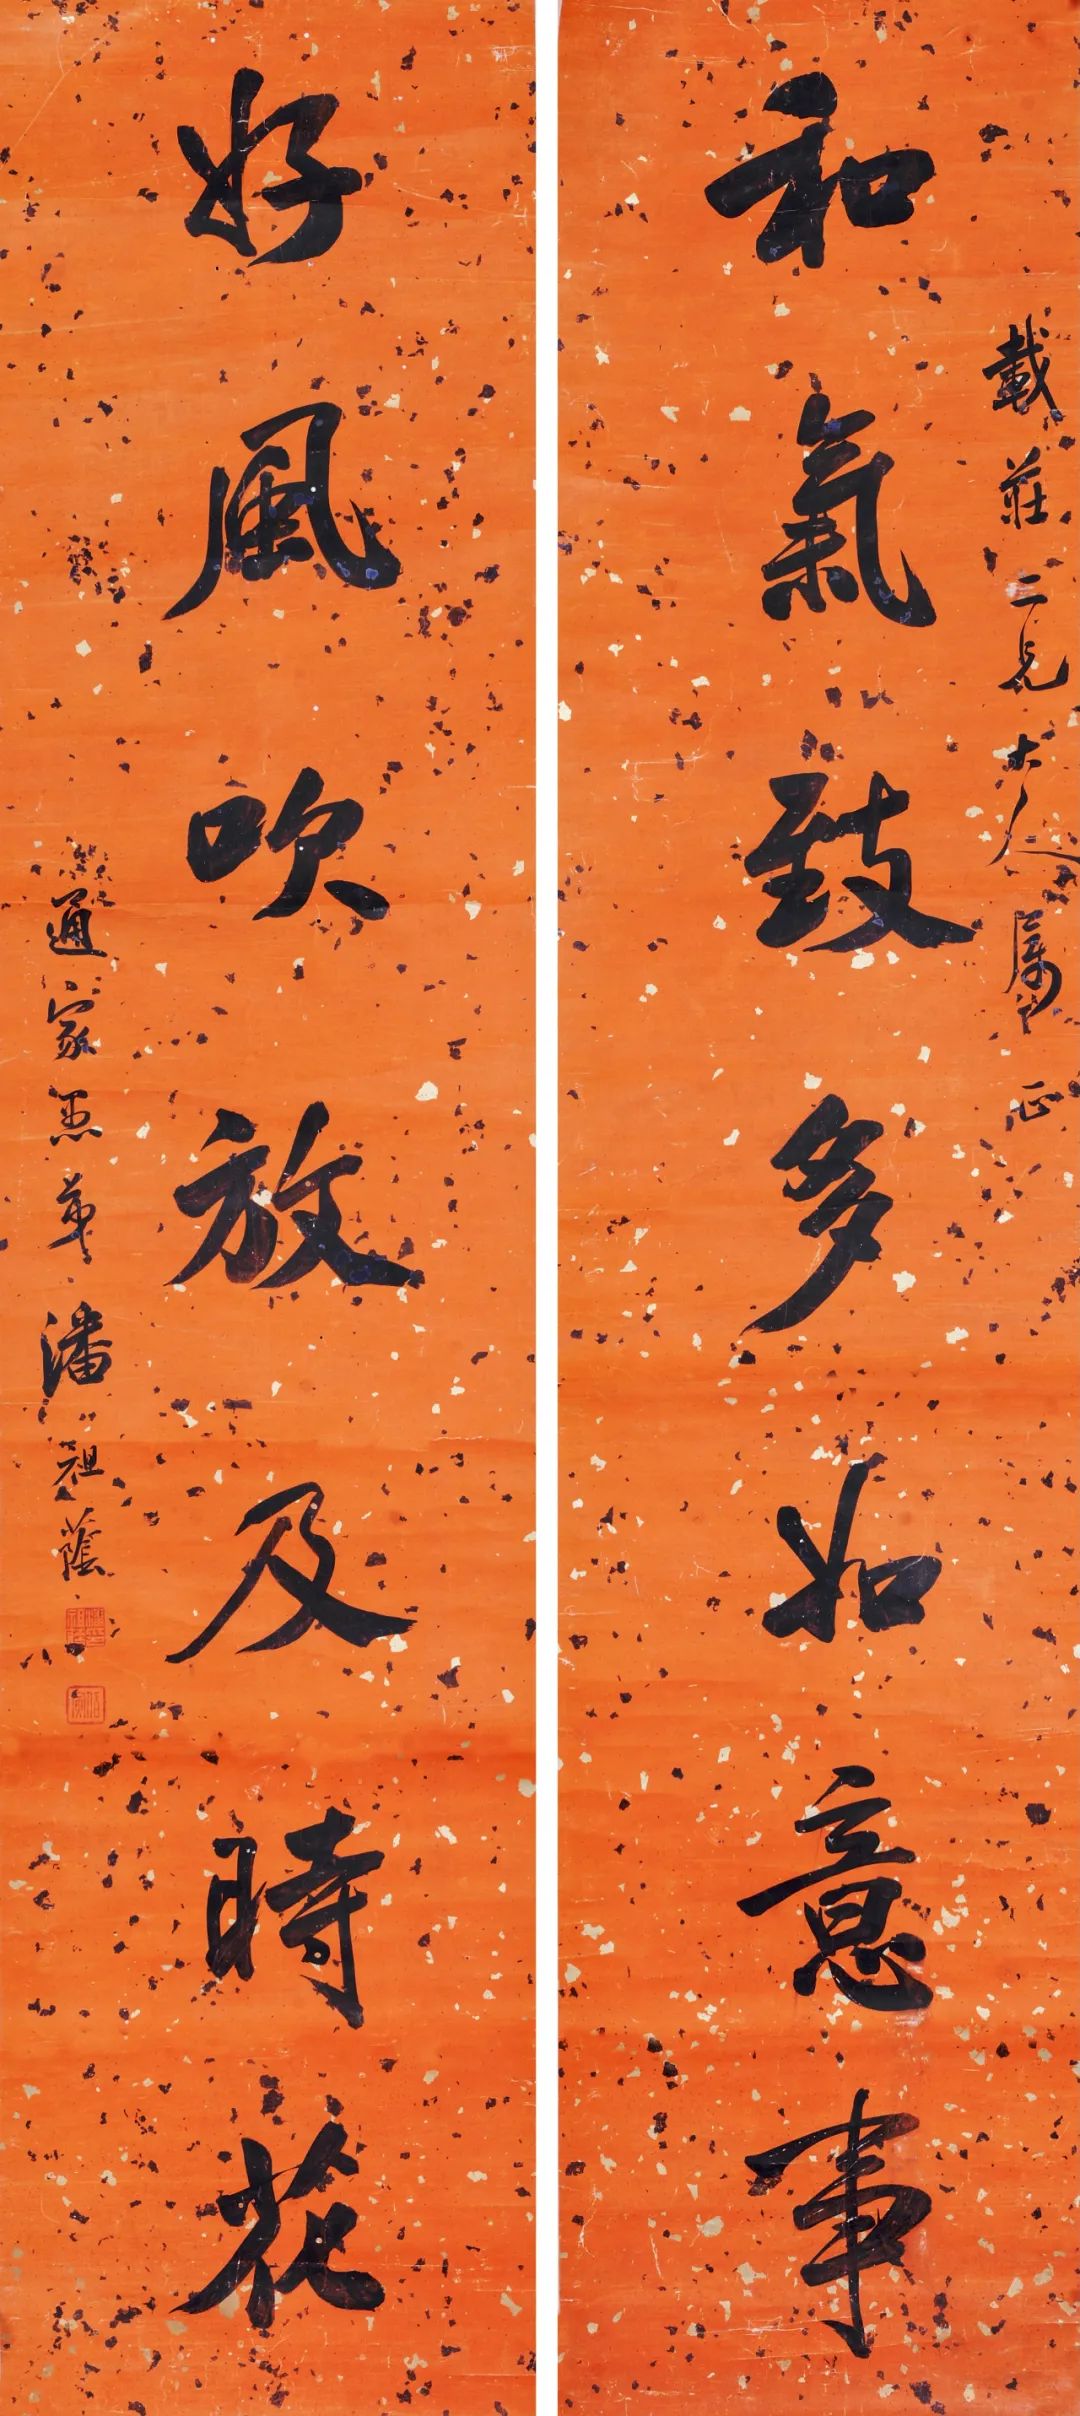 和氣致多如意事
載莊二兄大人屬正
好風吹放及時花
通家愚弟潘祖蔭